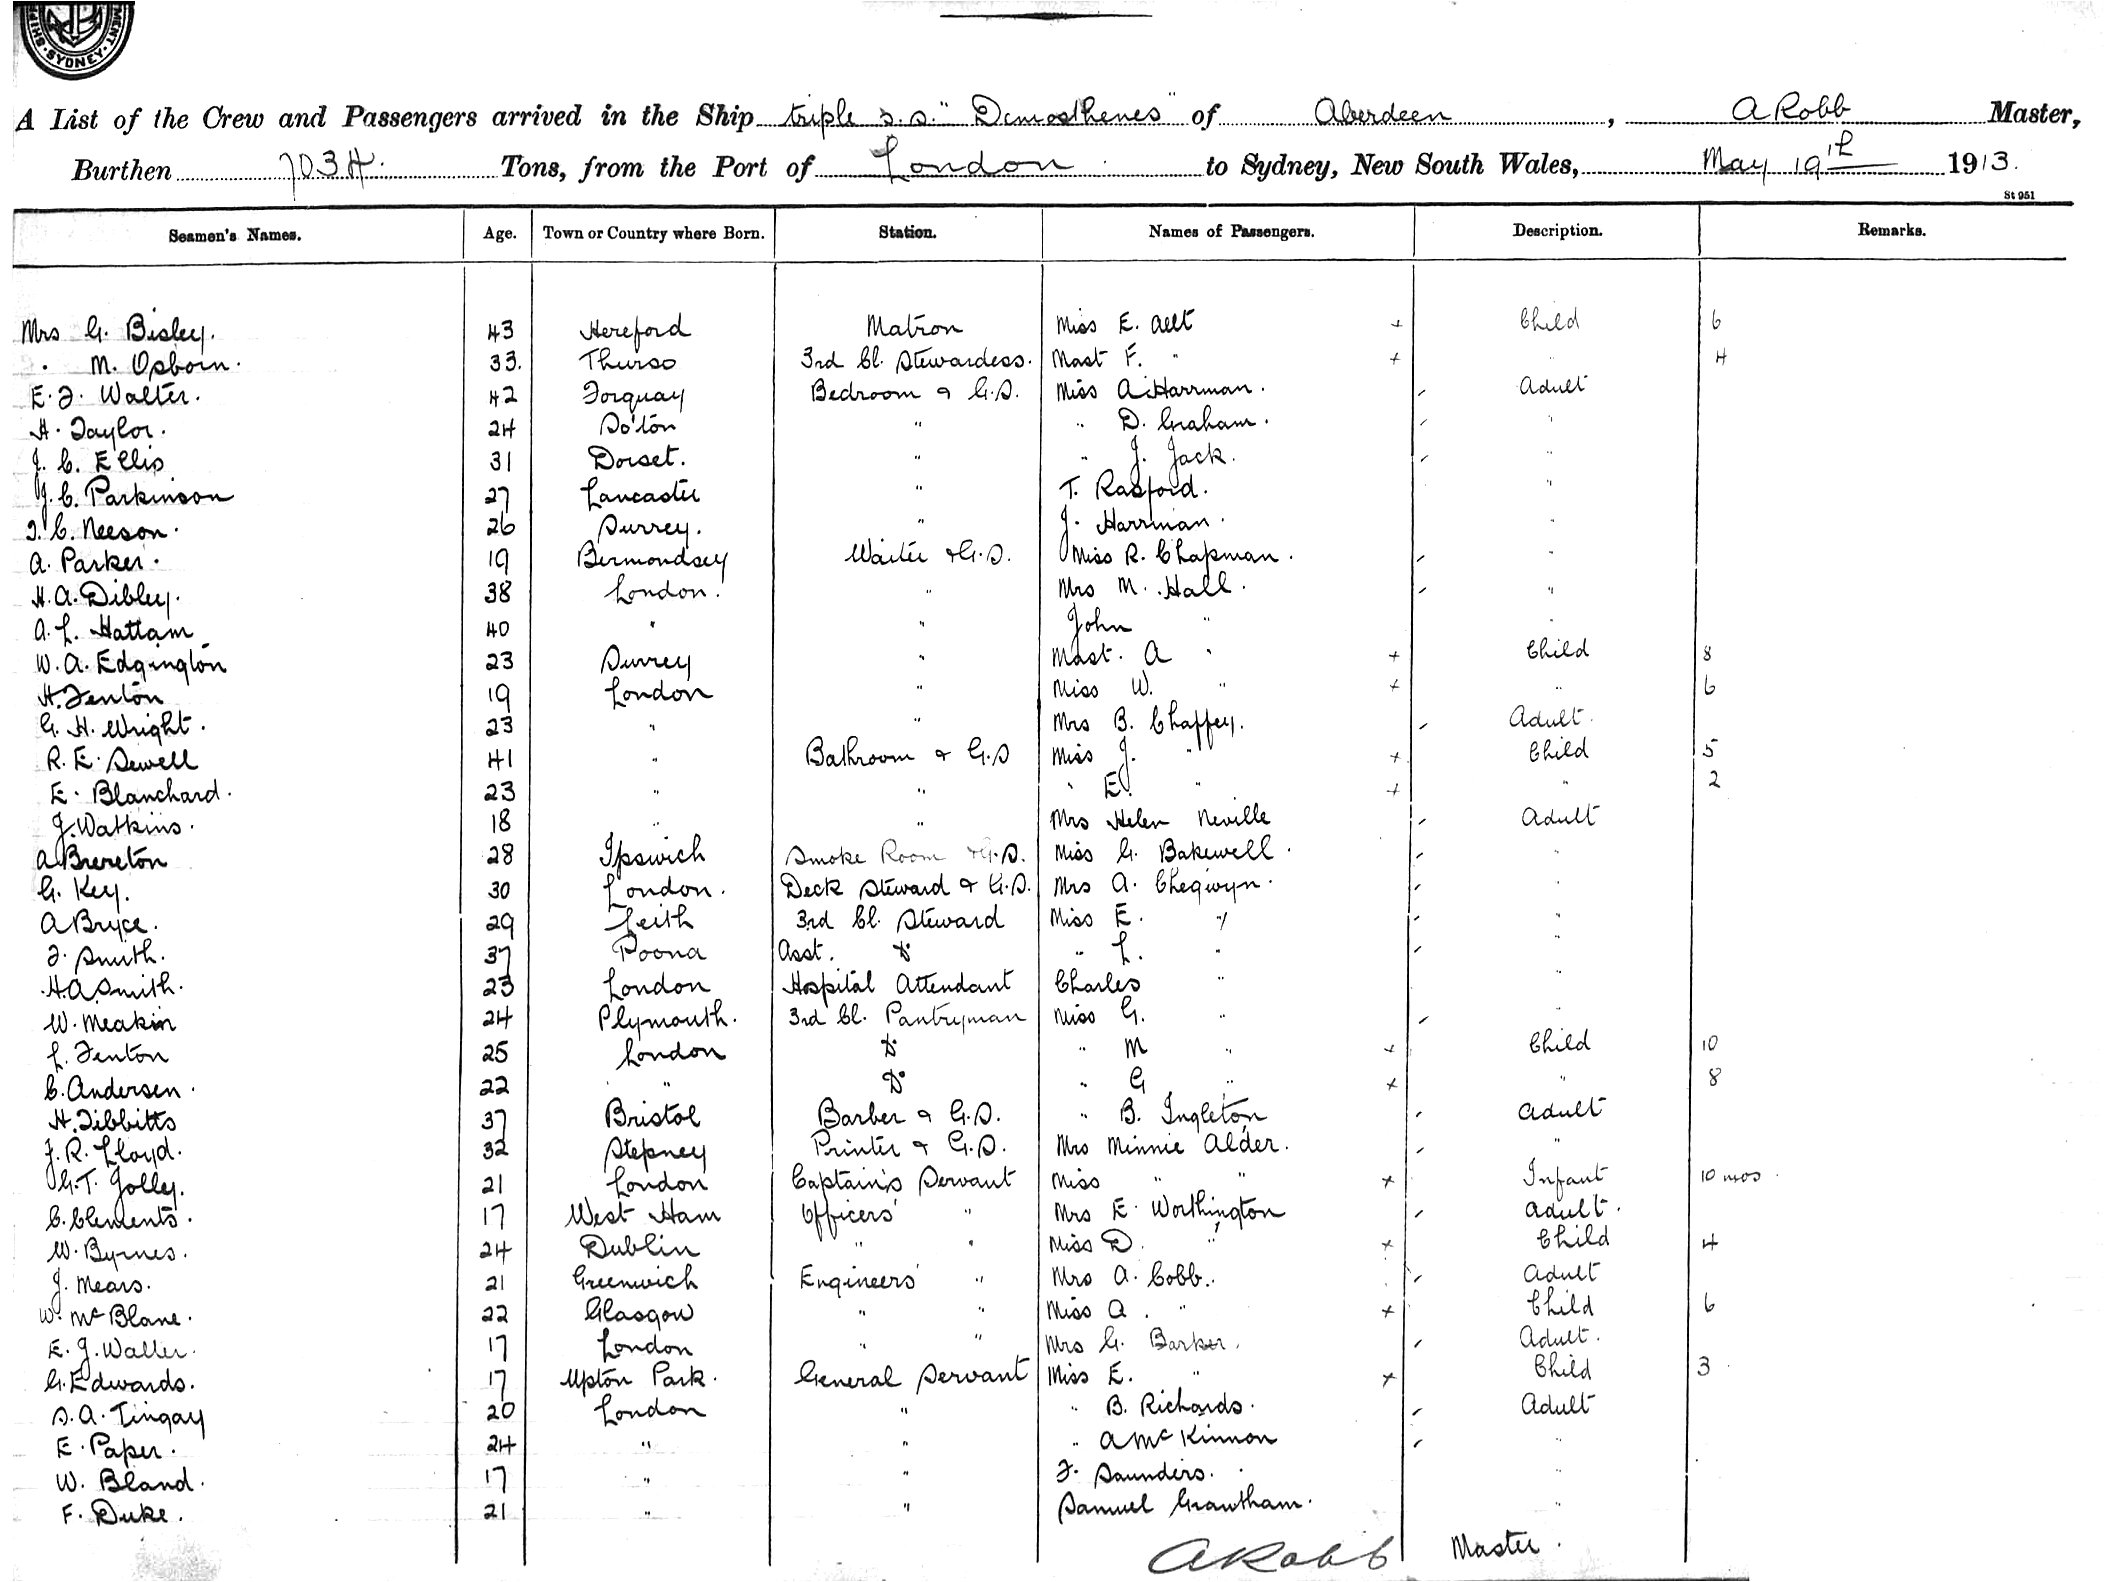 SYDNEY
A List of the Crew and Passengers arrived in the Ship triple s.s. "Demosthenes" of Aberdeen, A Robb Master,
Burthen 7034. Tons, from the Port of London to Sydney, New South Wales, May 19th 1913.
St 951
Seamen's Names. Age. Town or Country where Born. Station. Names of Passengers. Description. Remarks.
Mrs G. Bisley. 43 Hereford Matron Miss E. Allt + Child 6
" M. Osborn. 33. Thurso 3rd Cl. Stewardess. Mast F. " + " 4
E. J. Walter. 42 Torquay Bedroom & G.S. Miss A Harrman. Adult
H. Taylor. 24 So'ton " " D. Graham. "
J. C. Ellis 31 Dorset. " " J. Jack. "
J. C. Parkinson 27 Lancaster " T. Radford. "
T. C. Neeson. 26 Surrey. " J. Harrman. "
A. Parker. 19 Bermondsey Waiter & G.S. Miss R. Chapman. "
H. A. Dibley. 38 London. " Mrs M. Hall. "
A. L. Hattam 40 " " John " "
W. A. Edgington 23 Surrey " Mast. A " + Child 8
H. Fenton 19 London " Miss W. " + " 6
G. H. Wright. 23 " " Mrs B. Chaffey. Adult.
R. E. Sewell 41 " Bathroom & G.S Miss J. " + Child 5
E. Blanchard. 23 " " " E. " + " 2
J. Watkins. 18 " " Mrs Helen Neville Adult
A Brereton 28 Ipswich Smoke Room & G.S. Miss G. Bakewell. "
G. Key. 30 London. Deck Steward & G.S. Mrs A. Chegwyn. "
A Bryce. 29 Leith 3rd Cl. Steward Miss E. " "
F. Smith. 37 Poona Asst. Do " L. " "
H. A Smith. 23 London Hospital Attendant Charles " "
W. Meakin 24 Plymouth. 3rd Cl. Pantryman Miss G. " "
L. Fenton 25 London Do " M " + Child 10
C. Andersen. 22 " Do " G " + " 8
H. Tibbitts 37 Bristol Barber & G.S. " B. Ingleton Adult
J. R. Lloyd. 32 Stepney Printer & G.S. Mrs Minnie Alder. "
G. T. Jolley. 21 London Captain's Servant Miss " " + Infant 10 mos.
C. Clements. 17 West Ham Officers' " Mrs E. Worthington Adult.
W. Byrnes. 24 Dublin " " Miss D. " + Child 4
J. Mears. 21 Greenwich Engineers' " Mrs A. Cobb. Adult
W. McBlane. 22 Glasgow " " Miss A. " + Child 6
E. J. Waller. 17 London " " Mrs G. Barker. Adult.
G. Edwards. 17 Upton Park. General Servant Miss E. " + Child 3
S. A. Tingay 20 London " " B. Richards. Adult
E. Paper. 24 " " " A McKinnon "
W. Bland. 17 " " F. Saunders. "
F. Duke. 21 " " Samuel Grantham. "
A Robb Master.